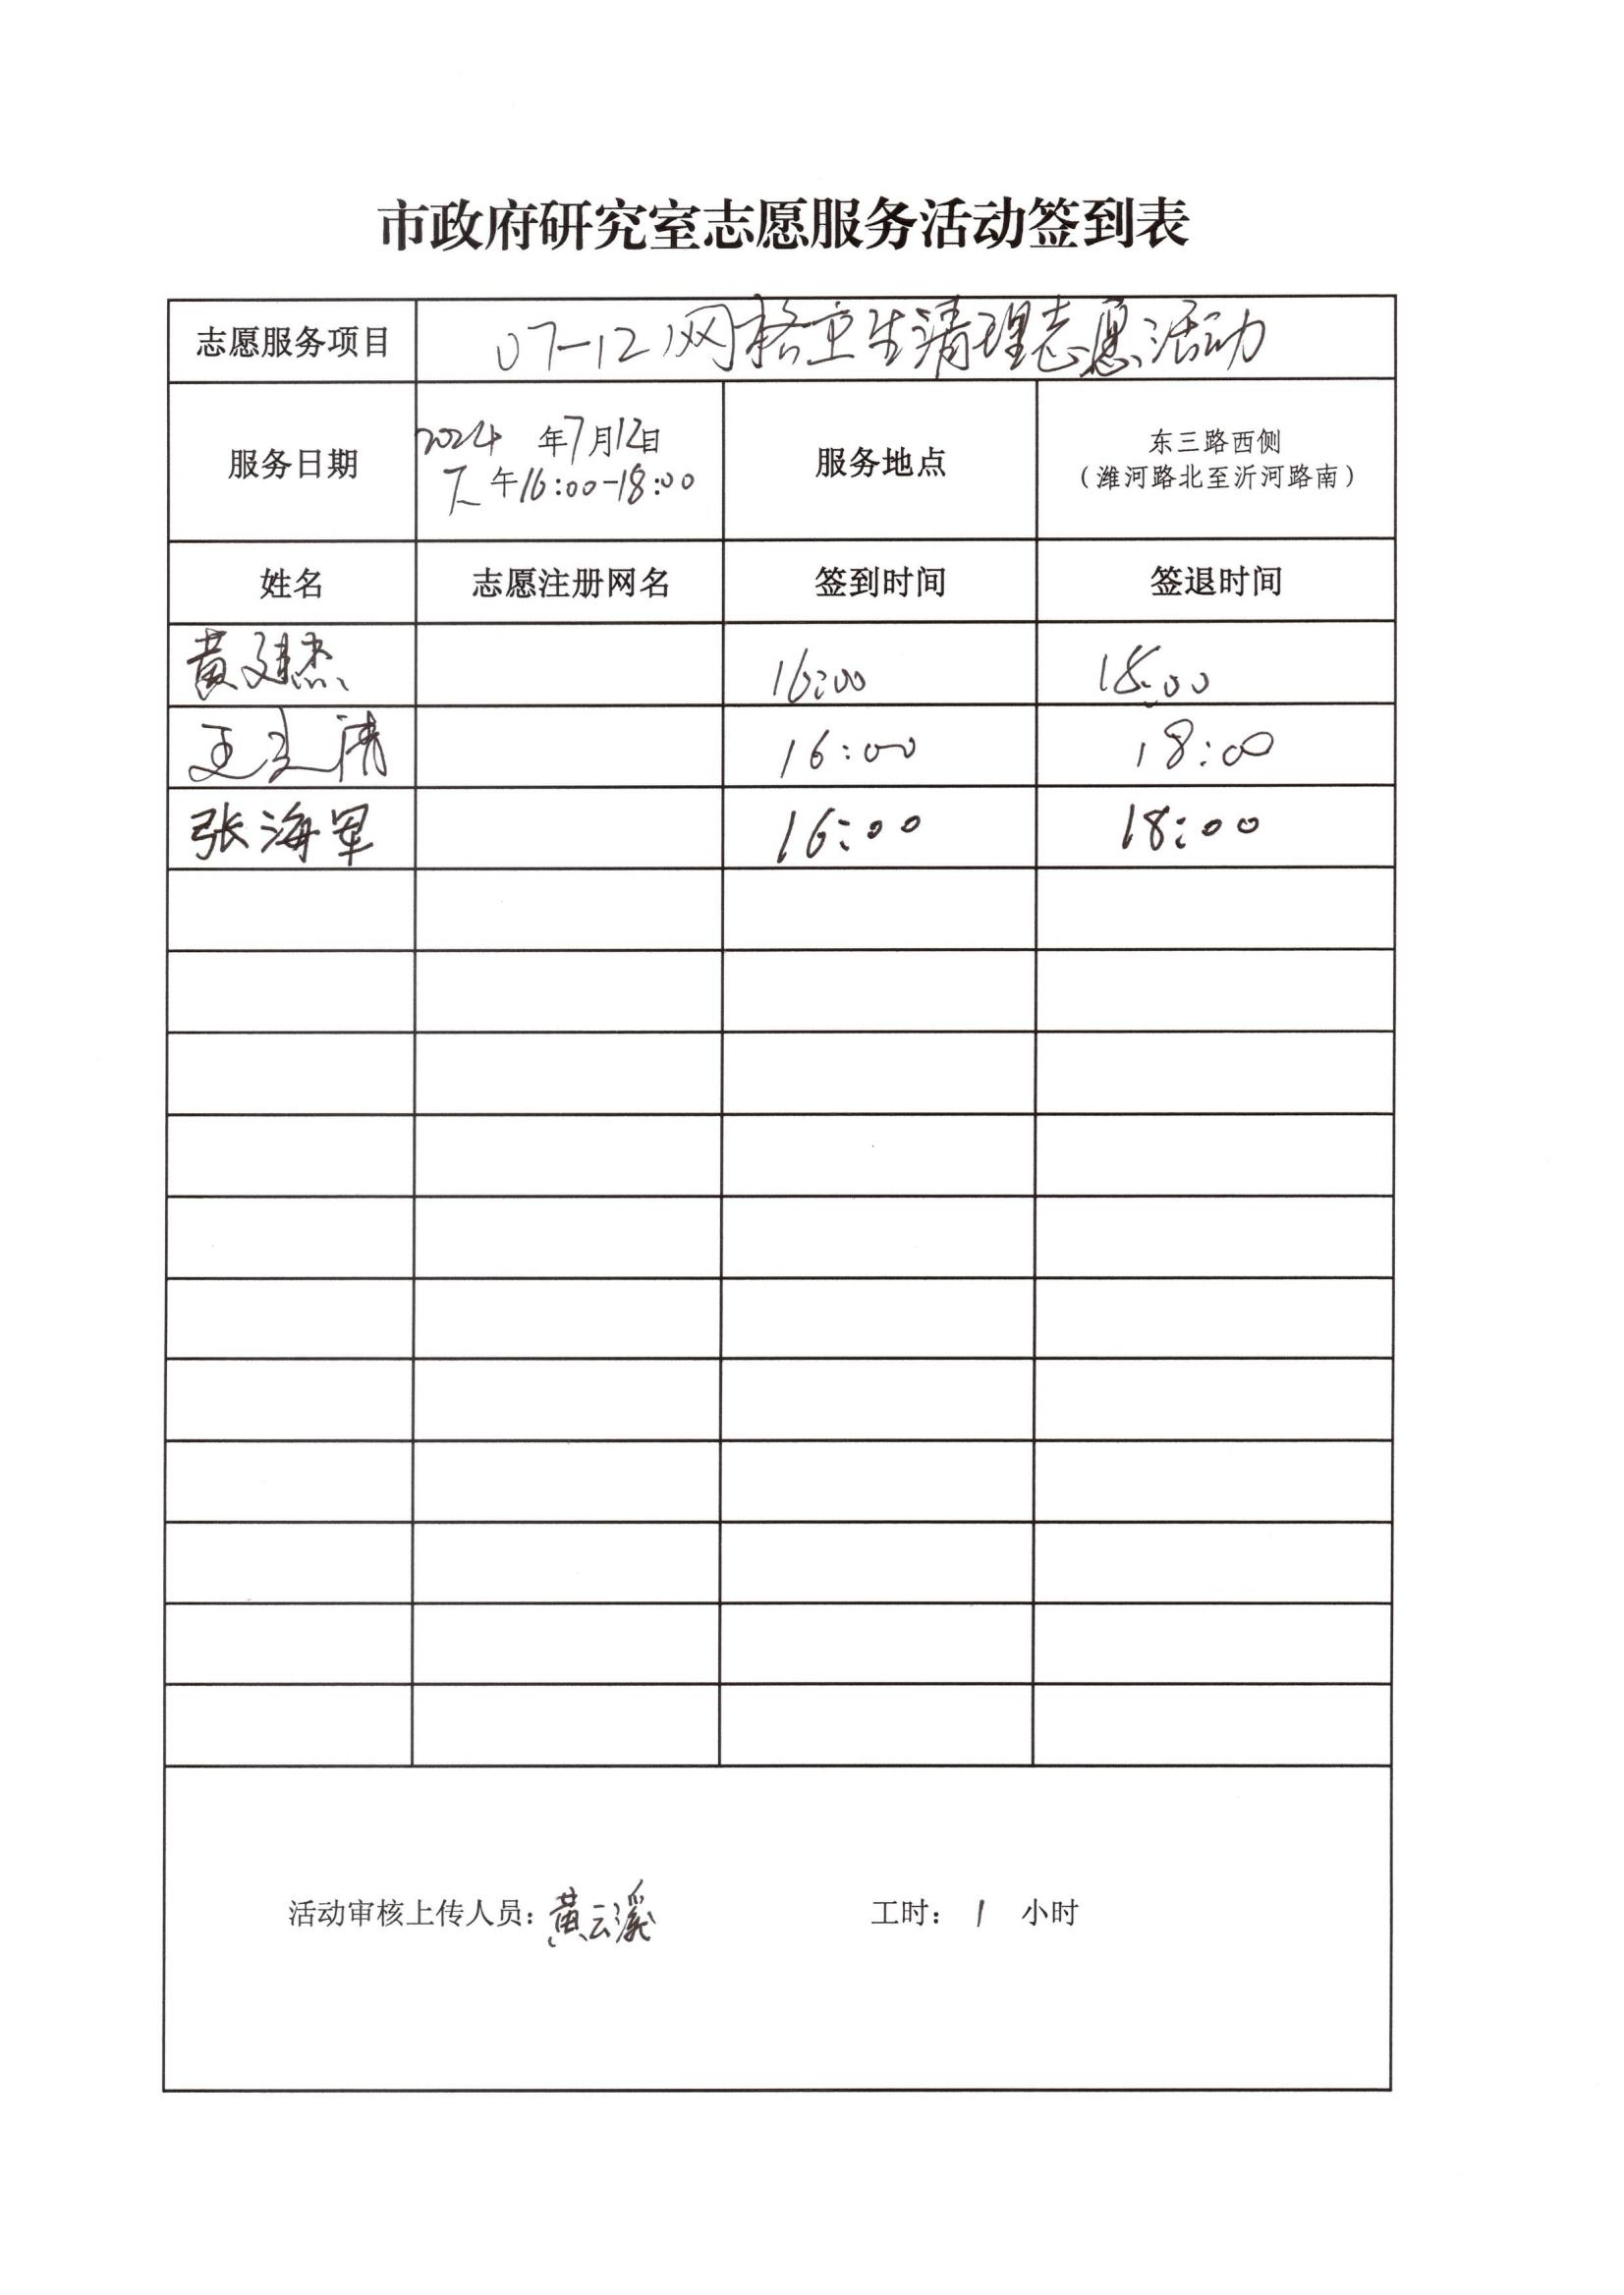 市政府研究室志愿服务活动签到表
志愿服务项目 07-12网格卫生清理志愿活动
服务日期 2024年7月12日 服务地点 东三路西侧
下午16:00-18:00 (潍河路北至沂河路南)
姓名 志愿注册网名 签到时间 签退时间
黄建杰 16:00 18:00
王 清 16:00 18:00
张海军 16:00 18:00
活动审核上传人员:黄云溪 工时: 1 小时